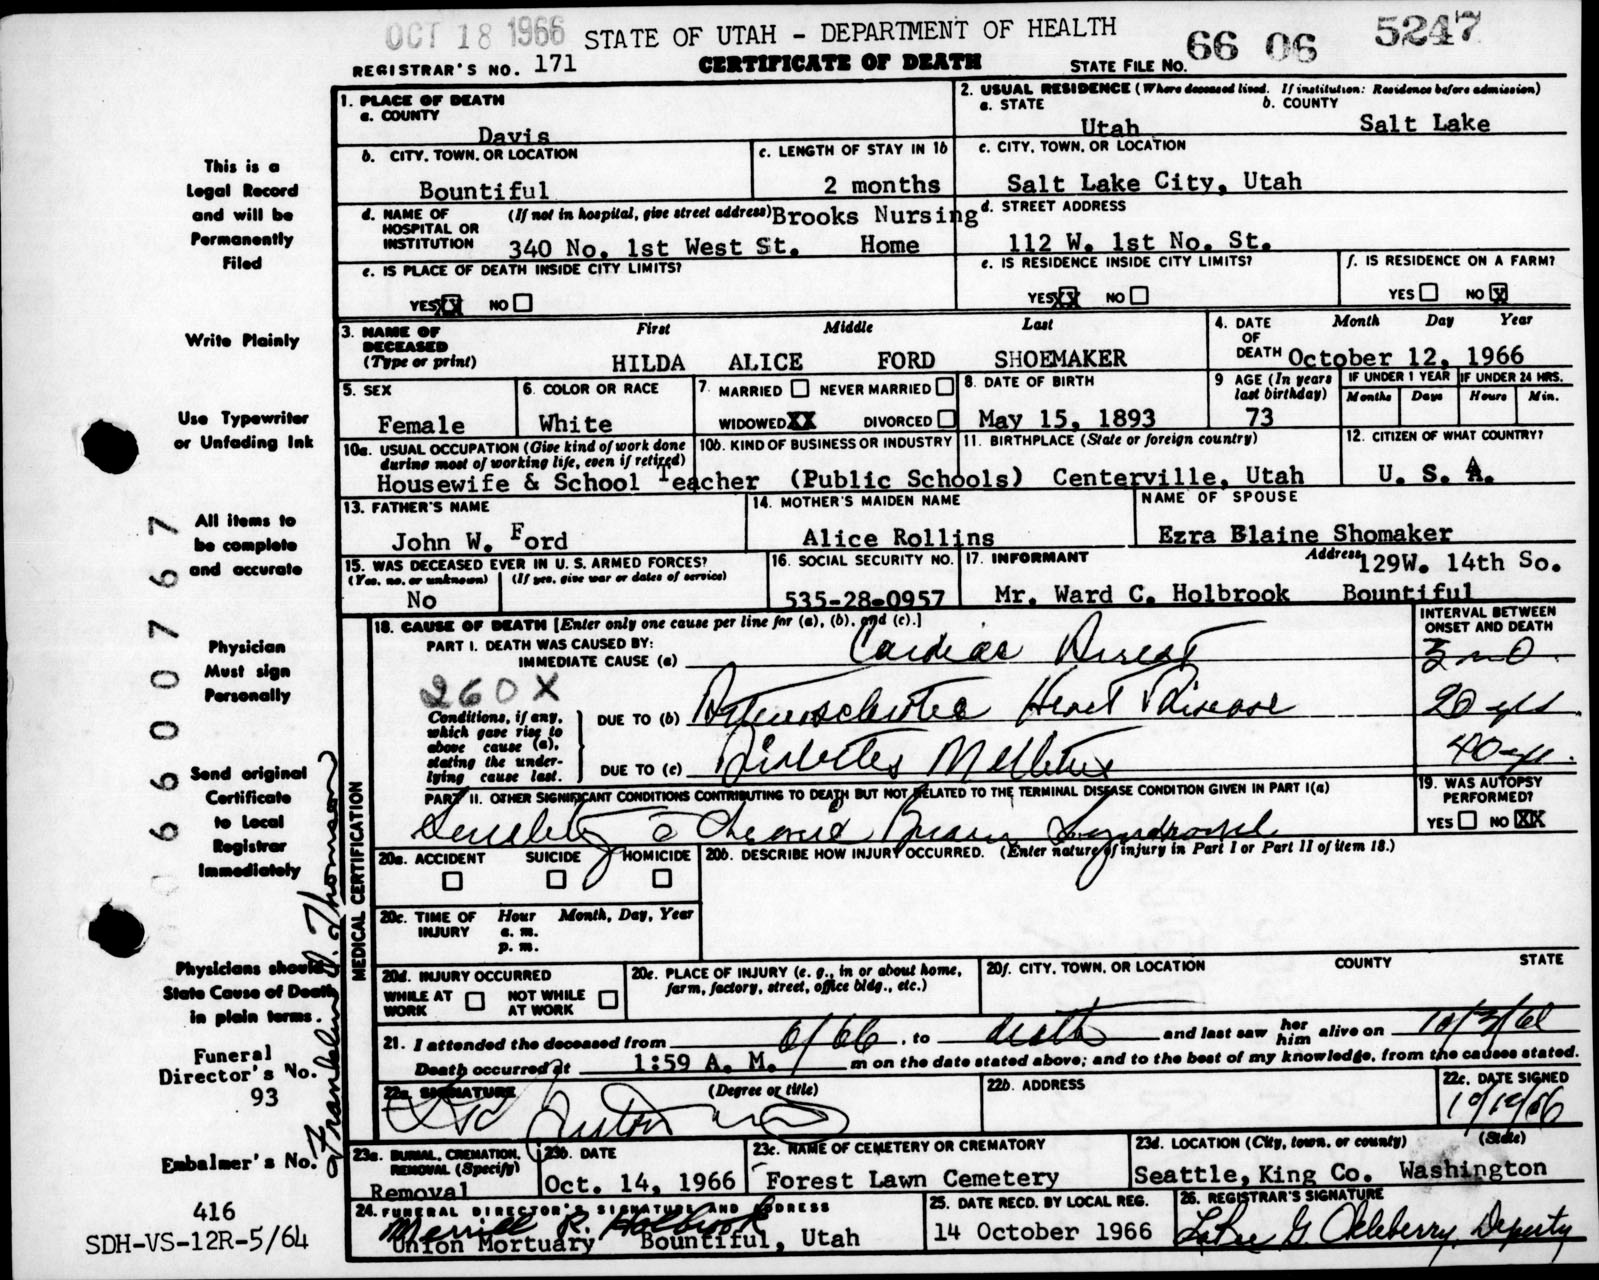 OCT 18 1966 STATE OF UTAH - DEPARTMENT OF HEALTH 66 06 5247
REGISTRAR'S NO. 171 CERTIFICATE OF DEATH STATE FILE NO.
1. PLACE OF DEATH
a. COUNTY
Davis
2. USUAL RESIDENCE (Where deceased lived. If institution: Residence before admission)
a. STATE b. COUNTY
Utah Salt Lake
b. CITY, TOWN, OR LOCATION
Bountiful
c. LENGTH OF STAY IN 1b
2 months
c. CITY, TOWN, OR LOCATION
Salt Lake City, Utah
d. NAME OF HOSPITAL OR INSTITUTION (If not in hospital, give street address) Brooks Nursing
340 No. 1st West St. Home
d. STREET ADDRESS
112 W. 1st No. St.
e. IS PLACE OF DEATH INSIDE CITY LIMITS?
YES XX NO
e. IS RESIDENCE INSIDE CITY LIMITS?
YES XX NO
f. IS RESIDENCE ON A FARM?
YES NO X
3. NAME OF DECEASED (Type or print) First Middle Last
HILDA ALICE FORD SHOEMAKER
4. DATE OF DEATH Month Day Year
October 12, 1966
5. SEX
Female
6. COLOR OR RACE
White
7. MARRIED NEVER MARRIED
WIDOWED XX DIVORCED
8. DATE OF BIRTH
May 15, 1893
9 AGE (In years last birthday)
73
IF UNDER 1 YEAR IF UNDER 24 HRS.
Months Days Hours Min.
10a. USUAL OCCUPATION (Give kind of work done during most of working life, even if retired)
Housewife & School Teacher
10b. KIND OF BUSINESS OR INDUSTRY
(Public Schools)
11. BIRTHPLACE (State or foreign country)
Centerville, Utah
12. CITIZEN OF WHAT COUNTRY?
U. S. A.
13. FATHER'S NAME
John W. Ford
14. MOTHER'S MAIDEN NAME
Alice Rollins
NAME OF SPOUSE
Ezra Blaine Shomaker
15. WAS DECEASED EVER IN U. S. ARMED FORCES?
(Yes, no, or unknown) (If yes, give war or dates of service)
No
16. SOCIAL SECURITY NO.
535-28-0957
17. INFORMANT Address 129W. 14th So.
Mr. Ward C. Holbrook Bountiful
18. CAUSE OF DEATH [Enter only one cause per line for (a), (b), and (c).]
INTERVAL BETWEEN ONSET AND DEATH
PART I. DEATH WAS CAUSED BY:
IMMEDIATE CAUSE (a) Cardiac Arrest
260X
Conditions, if any, which gave rise to above cause (a), stating the underlying cause last.
DUE TO (b) Arteriosclerotic Heart Disease 20 yrs
DUE TO (c) Diabetes Mellitus 40 yrs.
PART II. OTHER SIGNIFICANT CONDITIONS CONTRIBUTING TO DEATH BUT NOT RELATED TO THE TERMINAL DISEASE CONDITION GIVEN IN PART I(a)
Senility c Chronic Brain Syndrome
19. WAS AUTOPSY PERFORMED?
YES NO XX
20a. ACCIDENT SUICIDE HOMICIDE
20b. DESCRIBE HOW INJURY OCCURRED. (Enter nature of injury in Part I or Part II of item 18.)
20c. TIME OF INJURY Hour Month, Day, Year
a. m.
p. m.
20d. INJURY OCCURRED
WHILE AT WORK NOT WHILE AT WORK
20e. PLACE OF INJURY (e. g., in or about home, farm, factory, street, office bldg., etc.)
20f. CITY, TOWN, OR LOCATION COUNTY STATE
21. I attended the deceased from 6/66, to death and last saw her him alive on
Death occurred at 1:59 A. M. m on the date stated above; and to the best of my knowledge, from the causes stated.
22a. SIGNATURE (Degree or title)
22b. ADDRESS
22c. DATE SIGNED
23a. BURIAL, CREMATION, REMOVAL (Specify)
Removal
23b. DATE
Oct. 14, 1966
23c. NAME OF CEMETERY OR CREMATORY
Forest Lawn Cemetery
23d. LOCATION (City, town, or county) (State)
Seattle, King Co. Washington
24. FUNERAL DIRECTOR'S SIGNATURE AND ADDRESS
Merrill R. Holbrook
Union Mortuary Bountiful, Utah
25. DATE RECD. BY LOCAL REG.
14 October 1966
26. REGISTRAR'S SIGNATURE
Deputy
MEDICAL CERTIFICATION
This is a
Legal Record
and will be
Permanently
Filed
Write Plainly
Use Typewriter
or Unfading Ink
All items to
be complete
and accurate
Physician
Must sign
Personally
Send original
Certificate
to Local
Registrar
Immediately
Physicians should
State Cause of Death
in plain terms.
Funeral
Director's No.
93
Embalmer's No.
416
SDH-VS-12R-5/64
Franklin D. Thomson
6600767